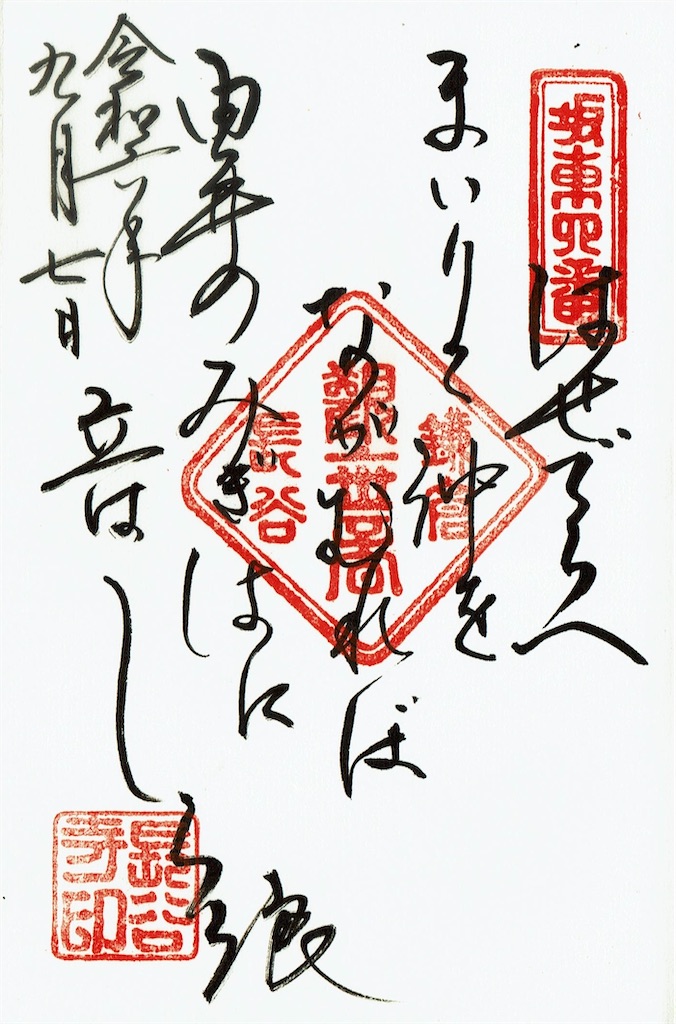 坂東四番
はせでらへ
まいりて沖を
ながむれば
由井のみぎはに
立はしら浪
令和六年
九月七日
鎌倉
長谷
長谷寺印